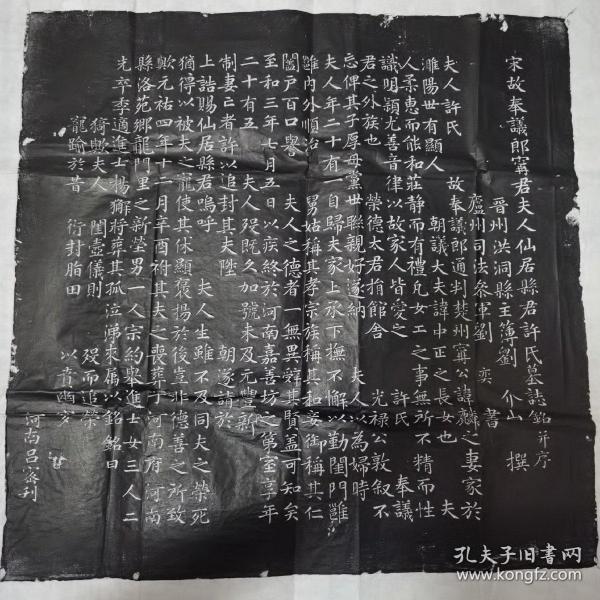 宋故奉議郎甯君夫人仙居縣君許氏墓誌銘并序
晉州洪洞縣主簿劉 介山 撰
廬州司法參軍劉 奕 書
夫人許氏 故奉議郎通判 州甯公諱麟之妻家於
濉陽世有顯人 朝議大夫諱中正之長女也 夫
人柔惠而能和莊靜而有禮凡女工之事無所不精而性
識明穎尤善音律以故家人皆愛之 許氏 奉議
君之外族也 榮德太君捐館舍 光禄公敦叙不
忘俾其子厚母黨世聯親好遂納 夫人以為婦時
夫人年二十有一自歸夫家上承下撫不懈以勤閨門雖
雖內外順治 舅姑稱其孝宗族稱其和妾御稱其仁
闔戶百口譽 夫人之德者一無異辭其賢蓋可知矣
至和三年七月五日以疾終於河南嘉善坊之第室享年
二十有五 夫人殁既久加號未及元豐新
制妻亡者許以追封其夫陞 朝遂請於
上誥賜仙居縣君嗚呼 夫人生雖不及同夫之榮死
猶得以被夫之寵使其休顯褒揚於後豈非德善之所致
歟元祐四年十二月辛酉祔其夫之喪葬于河南府河南
縣洛苑鄉龍門里之新塋男一人宗約舉進士女三人二
先卒季適進士楊獬將葬其孤泣涕來屬以銘銘曰
猗歟夫人 閨壼儀則 殁而追榮
寵踰於昔 衍封脂田 以賁幽穸
河南吕密刊
孔夫子旧书网
www.kongfz.com